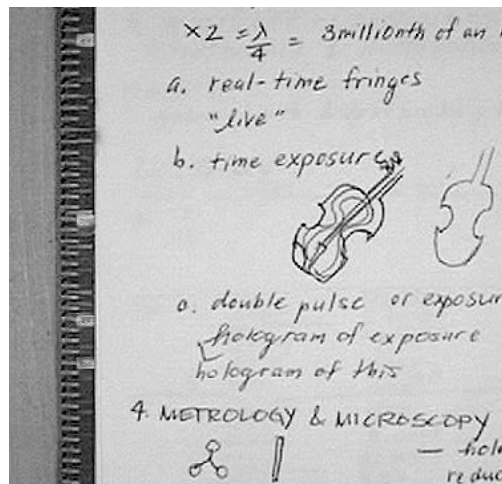 x2 = λ/4 = 3 millionth of an
a. real-time fringes
"live"
b. time exposure
c. double pulse or exposur
hologram of exposure
hologram of this
4. METROLOGY & MICROSCOPY
— holo
reduc